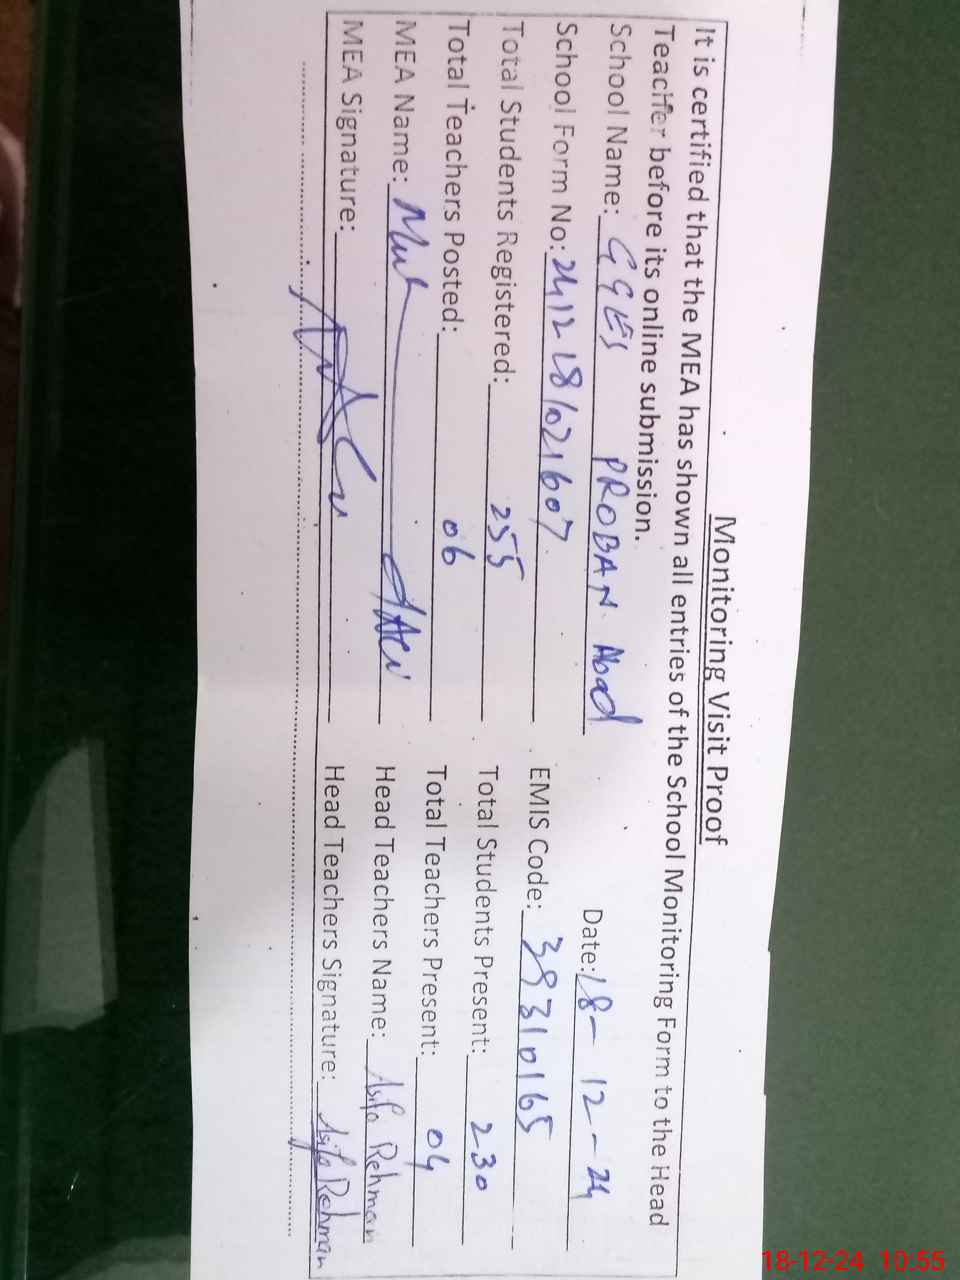 Monitoring Visit Proof
It is certified that the MEA has shown all entries of the School Monitoring Form to the Head
Teacher before its online submission.
School Name: GGES PROBAN Abad Date: 18-12-24
School Form No: 2412181021607 EMIS Code: 38310165
Total Students Registered: 255 Total Students Present: 230
Total Teachers Posted: 06 Total Teachers Present: 04
MEA Name: Head Teachers Name: Asifa Rehman
MEA Signature: Head Teachers Signature: Asifa Rehman
18-12-24 10:55